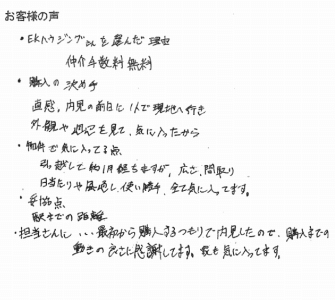 お客様の声
・EKハウジングさんを選んだ理由
仲介手数料無料
・購入の決め手
直感、内見の前日に1人で現地へ行き
外観や周辺を見て、気に入ったから
・物件で気に入ってる点
引っ越して約1ヶ月経ちますが、広さ、間取り
日当たりや風通し、使い勝手、全て気に入ってます。
・妥協点
駅までの距離
・担当さんに 、、最初から購入するつもりで内見したので、購入までの
動きの良さに感謝してます。家も気に入ってます。